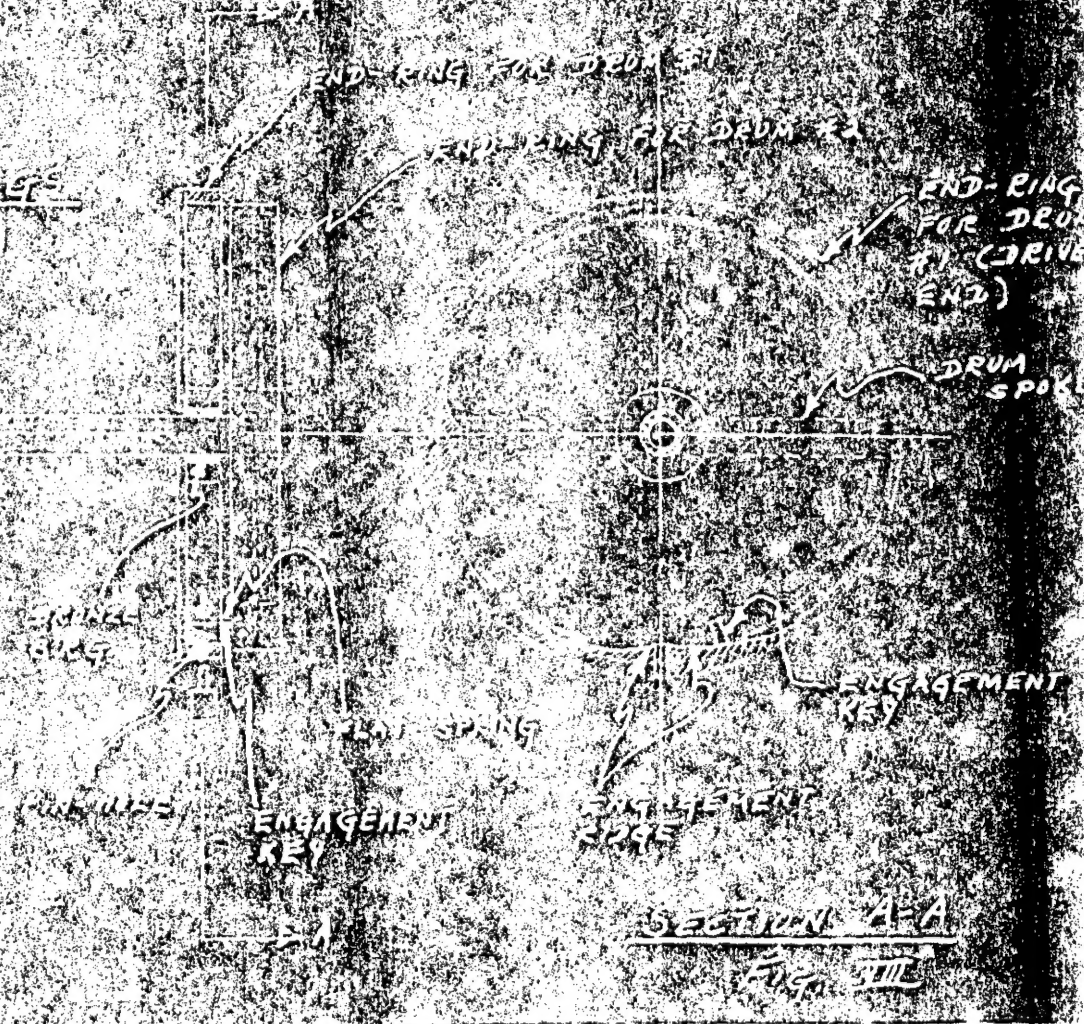 A
END-RING FOR DRUM #1
END-RING FOR DRUM #2
GS
END-RING
FOR DRU
#1 (DRIVE
END)
DRUM
SPOK
BRG.
FLAT SPRING
ENGAGEMENT
KEY
ENGAGEMENT
KEY
ENGAGEMENT
RIDGE
A
SECTION A-A
FIG. VIII